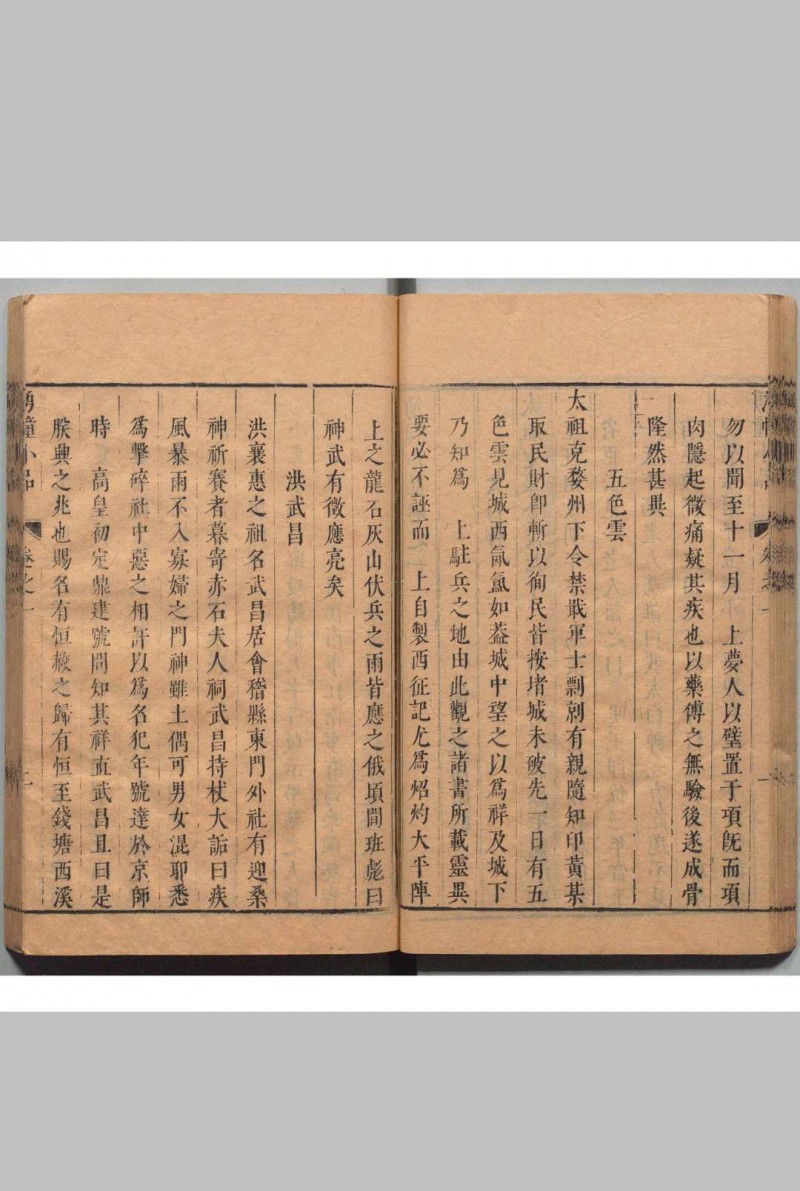 勿以聞至十一月　上夢人以璧置于項旣而項
肉隱起微痛疑其疾也以藥傅之無驗後遂成骨
隆然甚異
五色雲
太祖克婺州下令禁戢軍士剽刦有親隨知印黃某
取民財卽斬以徇民皆按堵城未破先一日有五
色雲見城西氤氳如葢城中望之以爲祥及城下
乃知爲　上駐兵之地由此觀之諸書所載靈異
要必不誣而　上自製西征記尤爲炤灼大平陣
上之龍石灰山伏兵之雨皆應之俄頃間班彪曰
神武有徵應亮矣
洪武昌
洪襄惠之祖名武昌居會稽縣東門外社有迎桑
神祈賽者暮寄赤石夫人祠武昌持杖大詬曰疾
風暴雨不入寡婦之門神雖土偶可男女混耶悉
爲擊碎社中惡之相訐以爲名犯年號達於京師
時　高皇初定鼎建號問知其祥直武昌且曰是
朕興之兆也賜名有恒赦之歸有恒至錢塘西溪
湧幢小品
卷之一